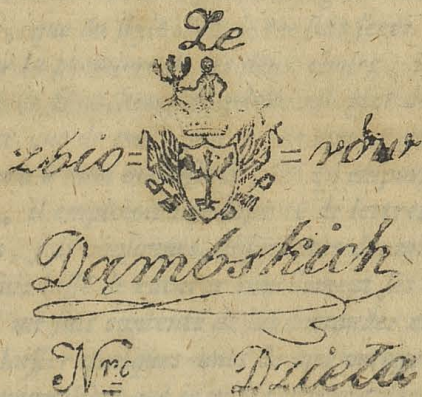 Ze
zbio= =rów
Dąmbskich
Nrọ Dzieła